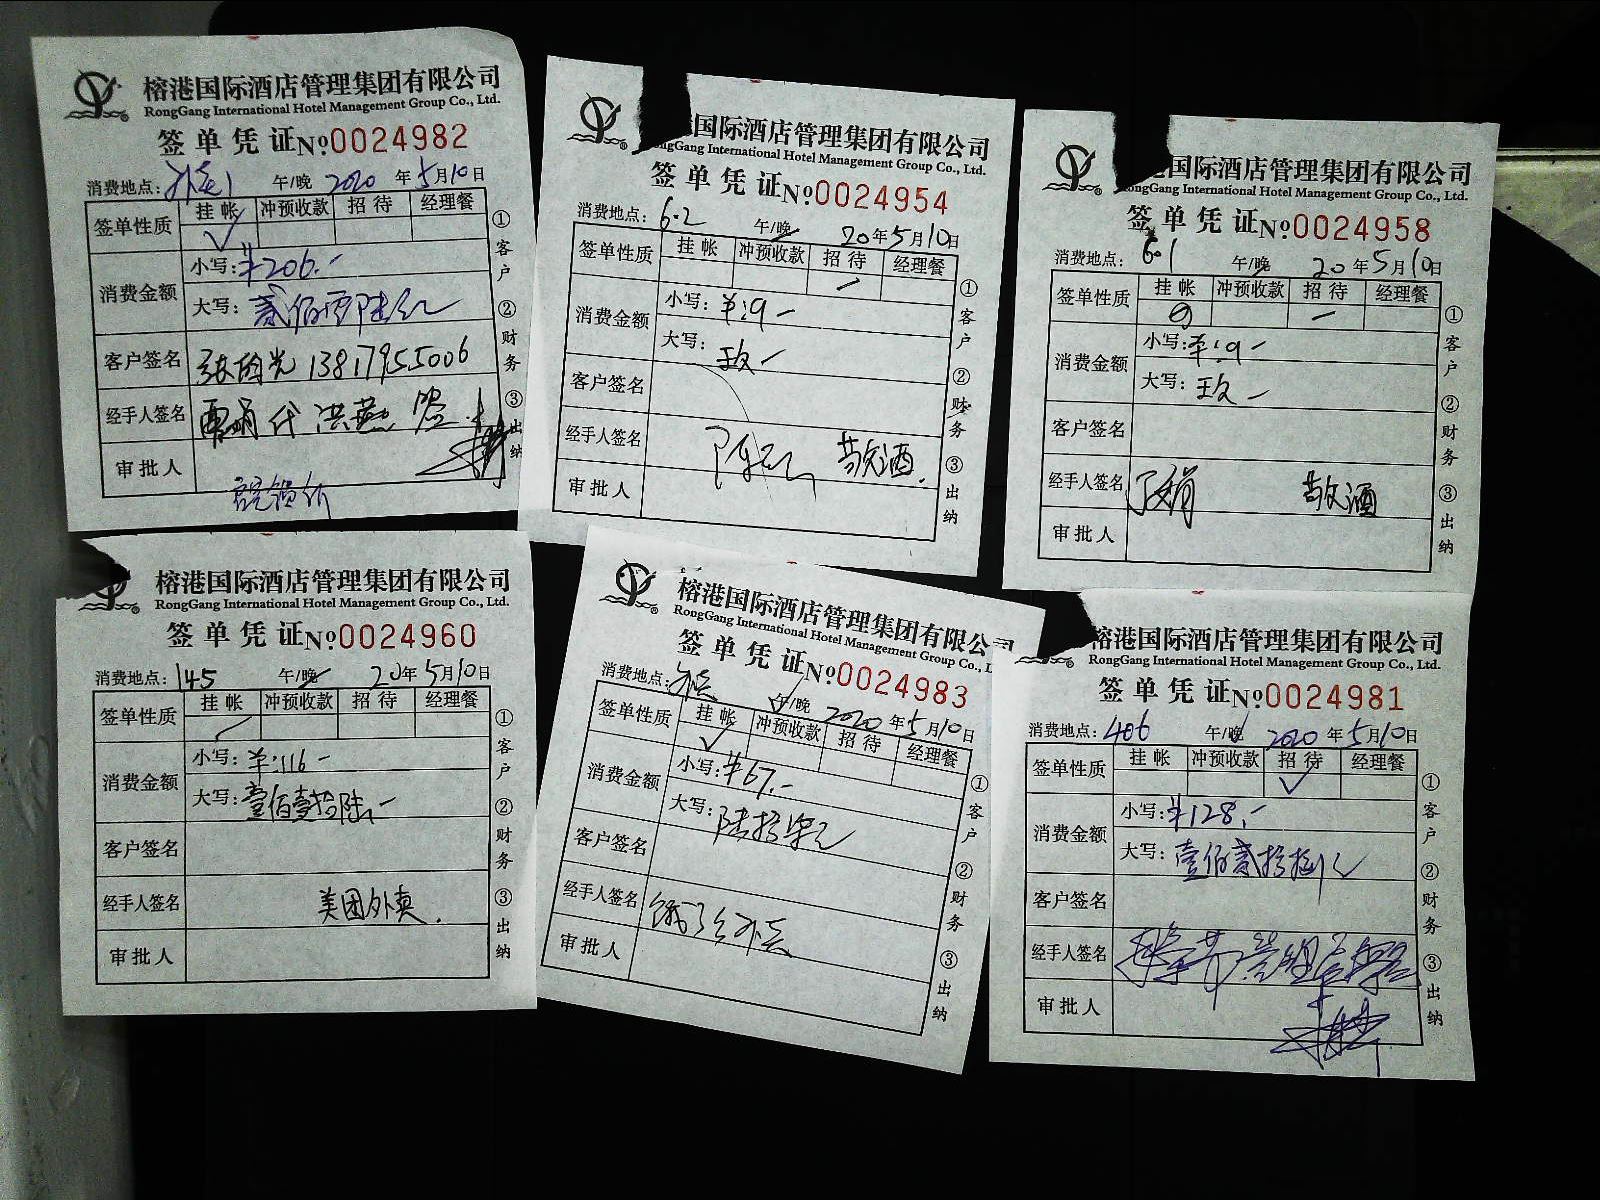 榕港国际酒店管理集团有限公司
RongGang International Hotel Management Group Co., Ltd.
签单凭证 №0024982
消费地点: 午/晚 2020 年 5 月 10 日
签单性质 挂帐 冲预收款 招待 经理餐
消费金额
小写: ¥206.-
大写: 贰佰零陆元
客户签名 13817955006
经手人签名 代洪燕
审批人
①客户 ②财务 ③出纳
国际酒店管理集团有限公司
Gang International Hotel Management Group Co., Ltd.
签单凭证 №0024954
消费地点: 6-2 午/晚 20 年 5 月 10 日
签单性质 挂帐 冲预收款 招待 经理餐
消费金额
小写: ¥:9-
大写: 玖-
客户签名
经手人签名 敬酒.
审批人
①客户 ②财务 ③出纳
国际酒店管理集团有限公司
Gang International Hotel Management Group Co., Ltd.
签单凭证 №0024958
消费地点: 6-1 午/晚 20 年 5 月 10 日
签单性质 挂帐 冲预收款 招待 经理餐
消费金额
小写: ¥:9-
大写: 玖-
客户签名
经手人签名 敬酒
审批人
①客户 ②财务 ③出纳
榕港国际酒店管理集团有限公司
RongGang International Hotel Management Group Co., Ltd.
签单凭证 №0024960
消费地点: 145 午/晚 20 年 5 月 10 日
签单性质 挂帐 冲预收款 招待 经理餐
消费金额
小写: ¥:116-
大写: 壹佰壹拾陆元-
客户签名
经手人签名 美团外卖.
审批人
①客户 ②财务 ③出纳
榕港国际酒店管理集团有限公司
RongGang International Hotel Management Group Co., L
签单凭证 №0024983
消费地点: 外卖 午/晚 2020 年 5 月 10 日
签单性质 挂帐 冲预收款 招待 经理餐
消费金额
小写: ¥67.-
大写: 陆拾柒元
客户签名
经手人签名 饿了么外卖
审批人
①客户 ②财务 ③出纳
榕港国际酒店管理集团有限公司
RongGang International Hotel Management Group Co., Ltd.
签单凭证 №0024981
消费地点: 406 午/晚 2020 年 5 月 10 日
签单性质 挂帐 冲预收款 招待 经理餐
消费金额
小写: ¥128.-
大写: 壹佰贰拾捌元
客户签名
经手人签名
审批人
①客户 ②财务 ③出纳